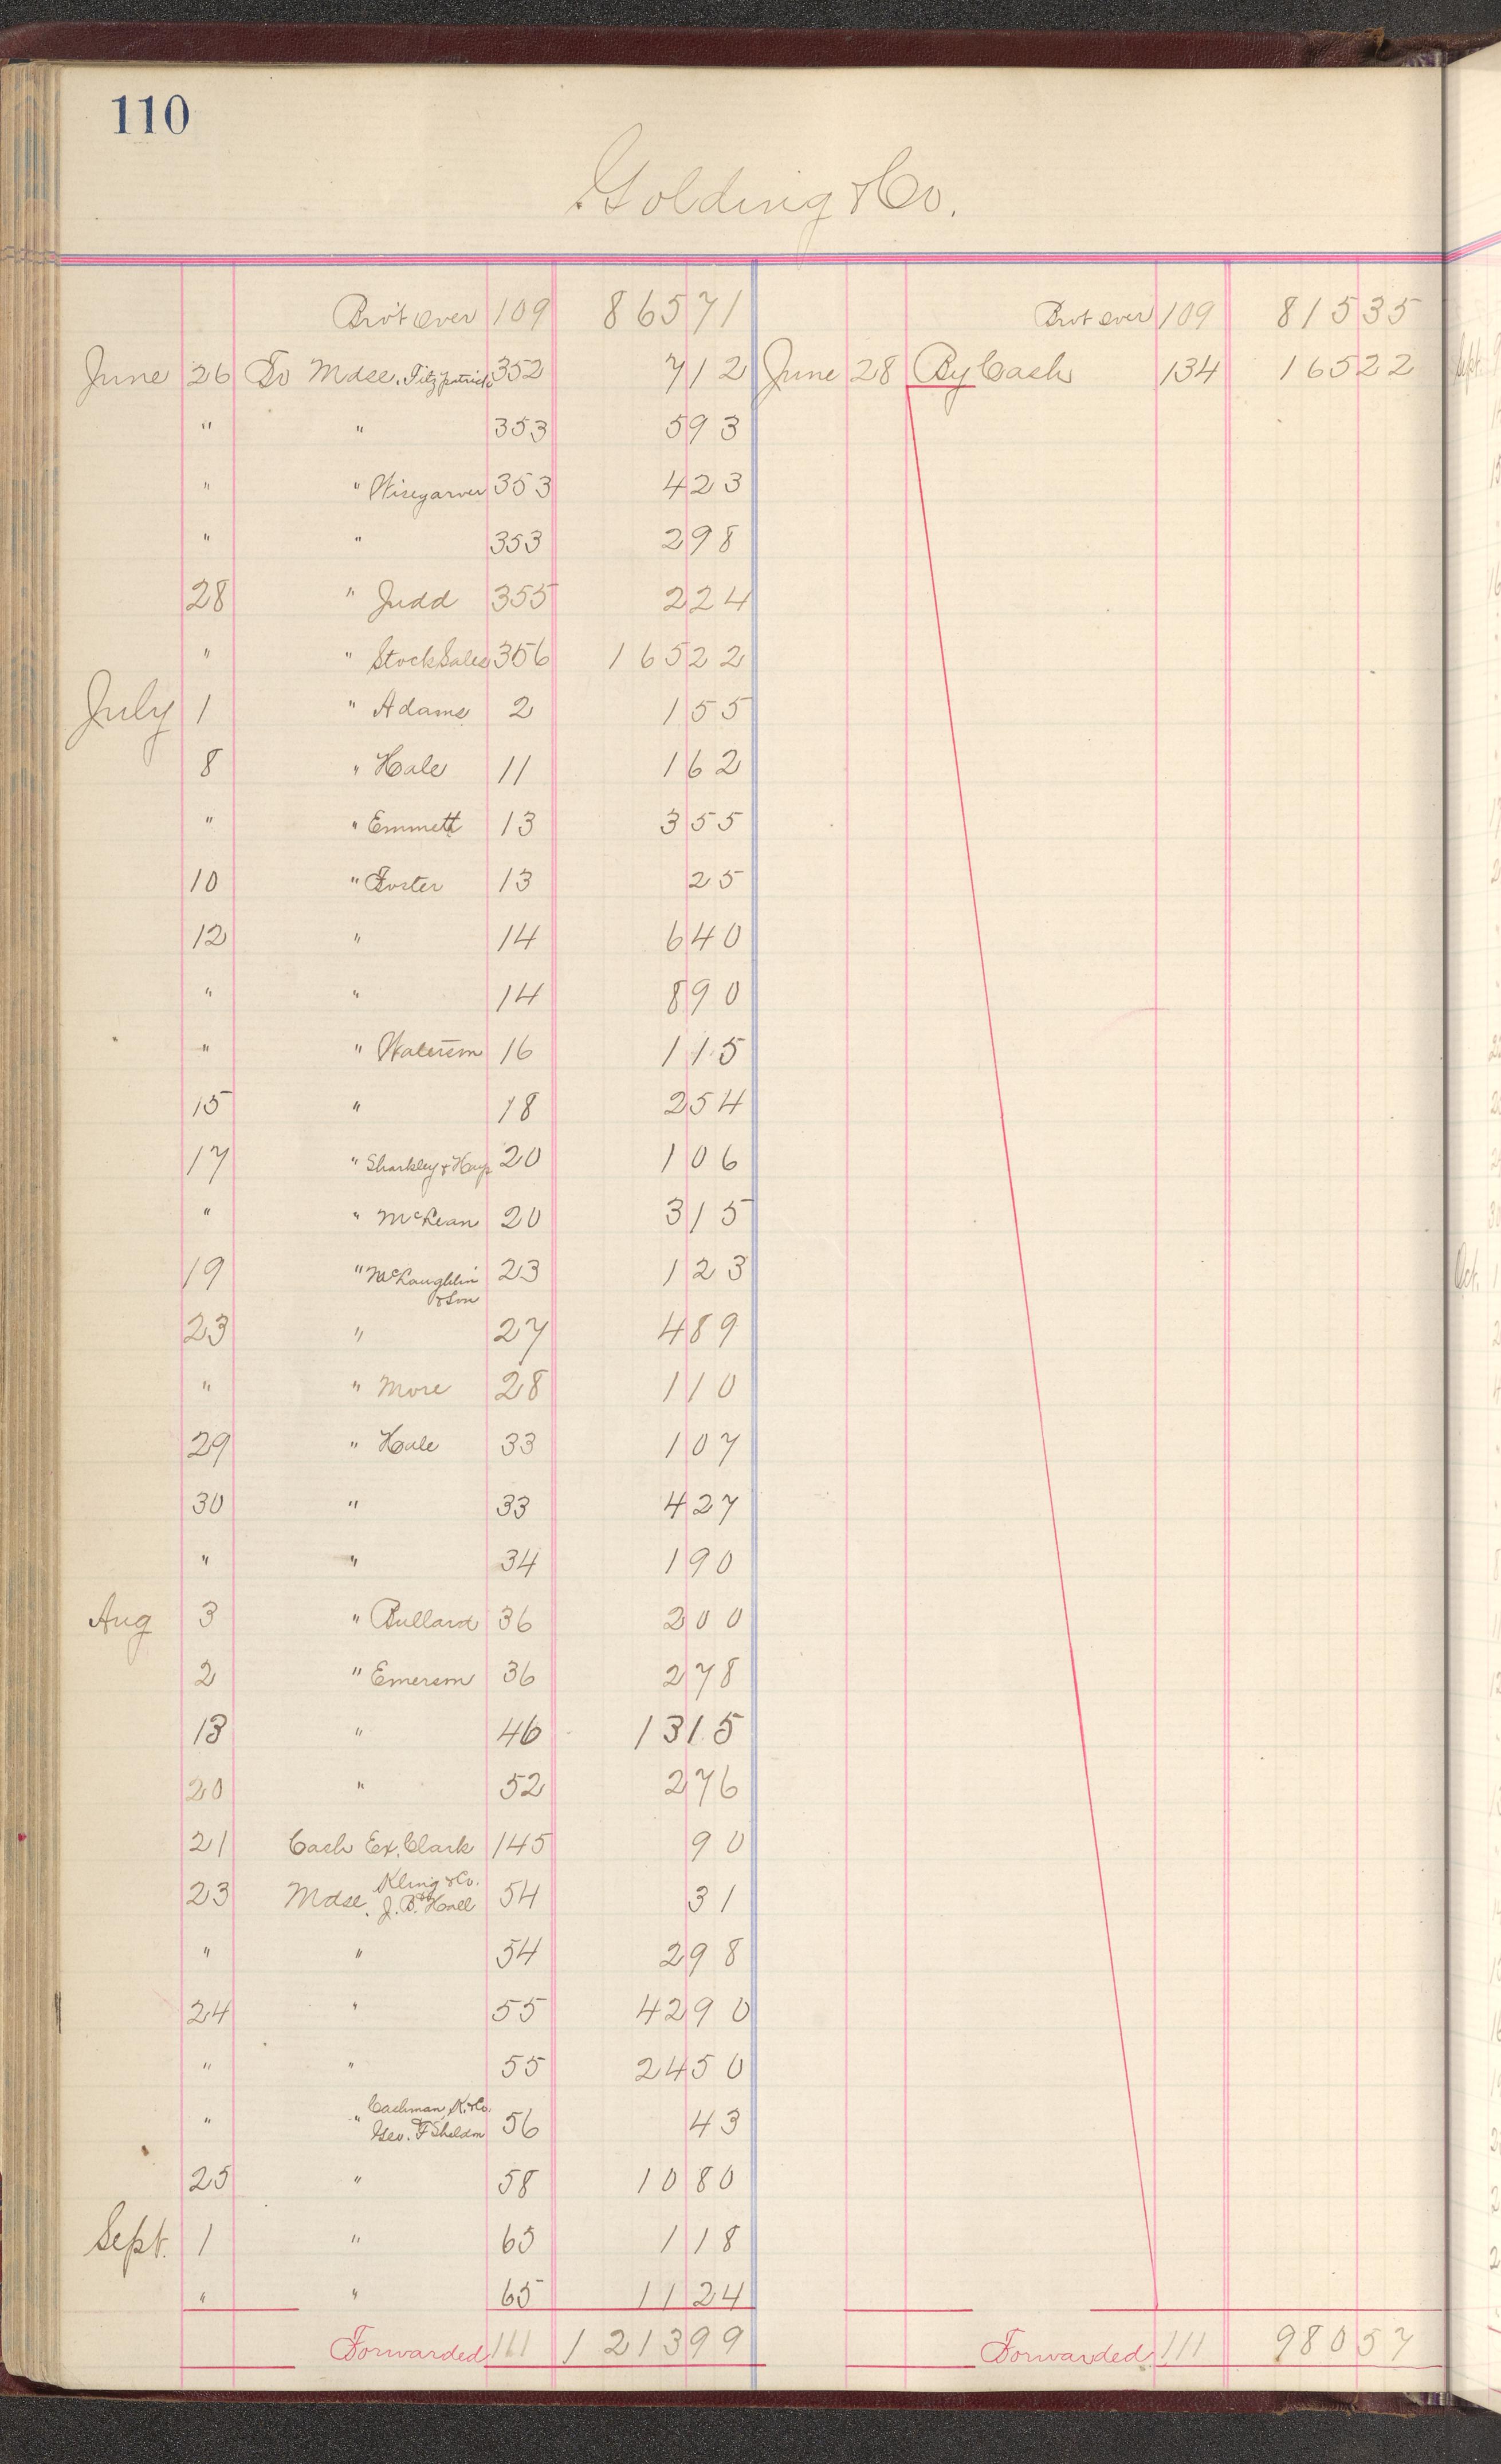 110
Golding & Co.
Bro't over 109 865 71 Brot over 109 815 35
June 26 To Mdse. Fitzpatrick 352 7 12 June 28 By Cash 134 165 22
" " 353 5 93
" " Wisegarver 353 4 23
" " 353 2 98
28 " Judd 355 2 24
" " Stock Sales 356 165 22
July 1 " Adams 2 1 55
8 " Hale 11 1 62
" " Emmett 13 3 55
10 " Foster 13 25
12 " 14 6 40
" " 14 8 90
" " 16 1 15
15 " 18 2 54
17 " Sharkley & Hays 20 1 06
" " McLean 20 3 15
19 " McLaughlin 23 1 23
& Son
23 " 27 4 89
" " More 28 1 10
29 " Hale 33 1 07
30 " 33 4 27
" " 34 1 90
Aug 3 " Bullard 36 2 00
2 " Emerson 36 2 78
13 " 46 13 15
20 " 52 2 76
21 Cash Ex. Clark 145 90
Kling & Co.
23 Mdse. J. B. Hall 54 31
" " 54 2 98
24 " 55 42 90
" " 55 24 50
Cashman, K. & Co.
" " Geo. F Sheldon 56 43
25 " 58 10 80
Sept. 1 " 65 1 18
" " 65 11 24
Forwarded 111 1213 99 Forwarded 111 980 57